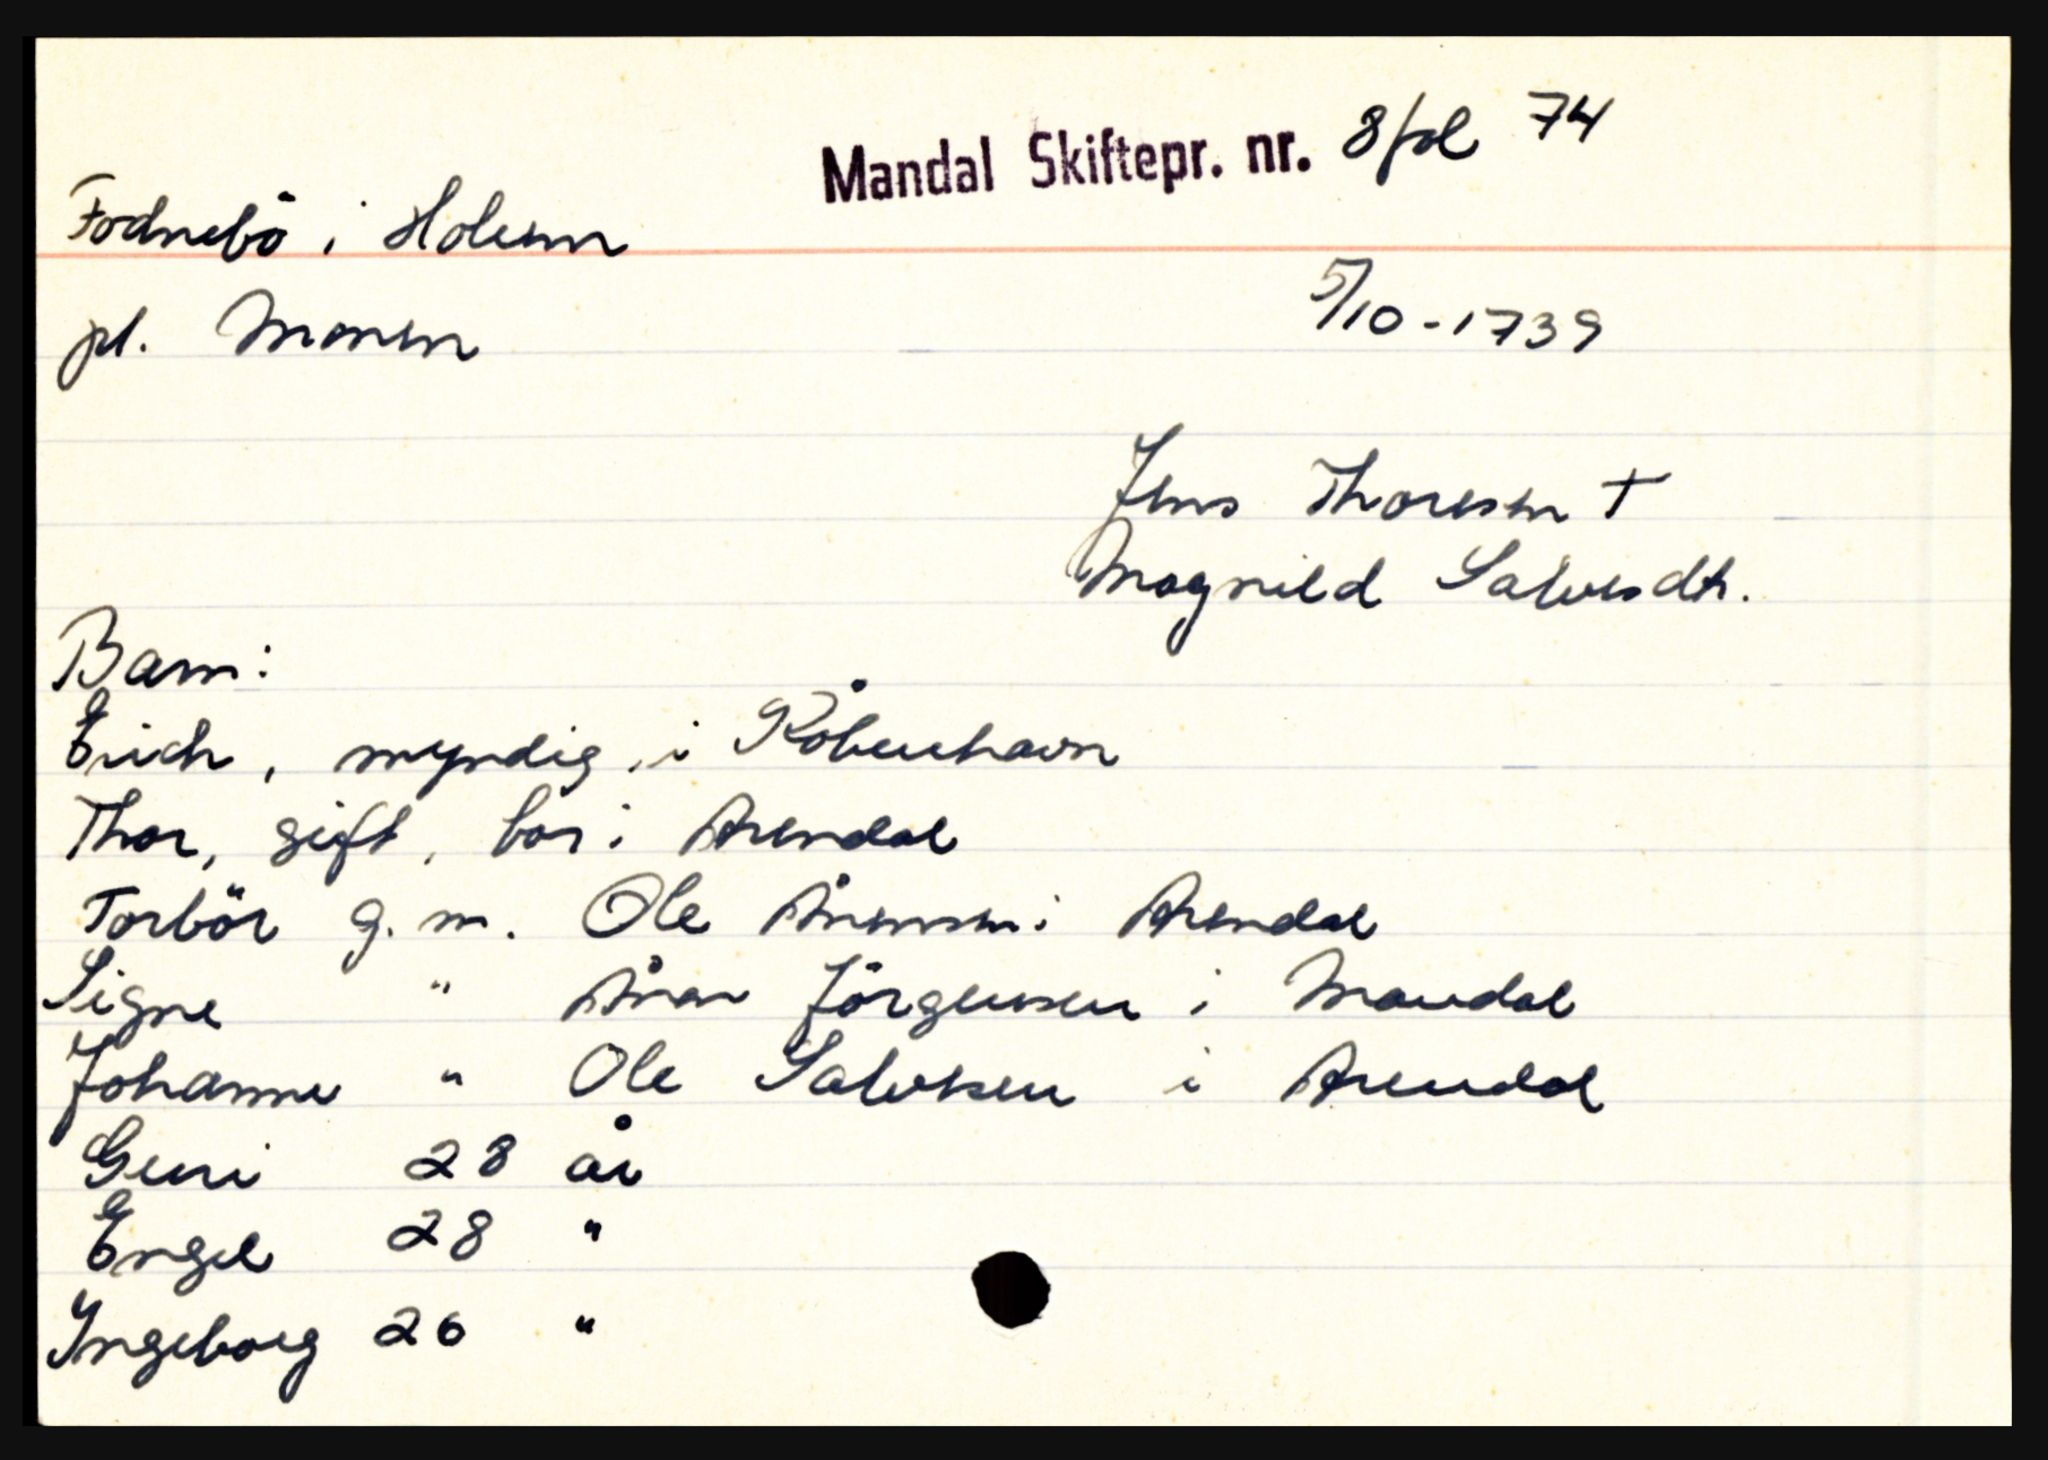 Mandal Skiftepr. nr. 8 fol 74
Fodnebö i Holum
pl. Monen
5/10-1739
Jens Thoresen †
Magnild Salvesdtr.
Barn:
Erich, myndig, i Köbenhavn
Thor, gift, bor i Arendal
Torbör g. m. Ole Ånensen i Arendal
Signe " Ånen Jörgensen i Mandal
Johanne " Ole Salvesen i Arendal
Guri 28 år
Engel 28 "
Ingeborg 26 "